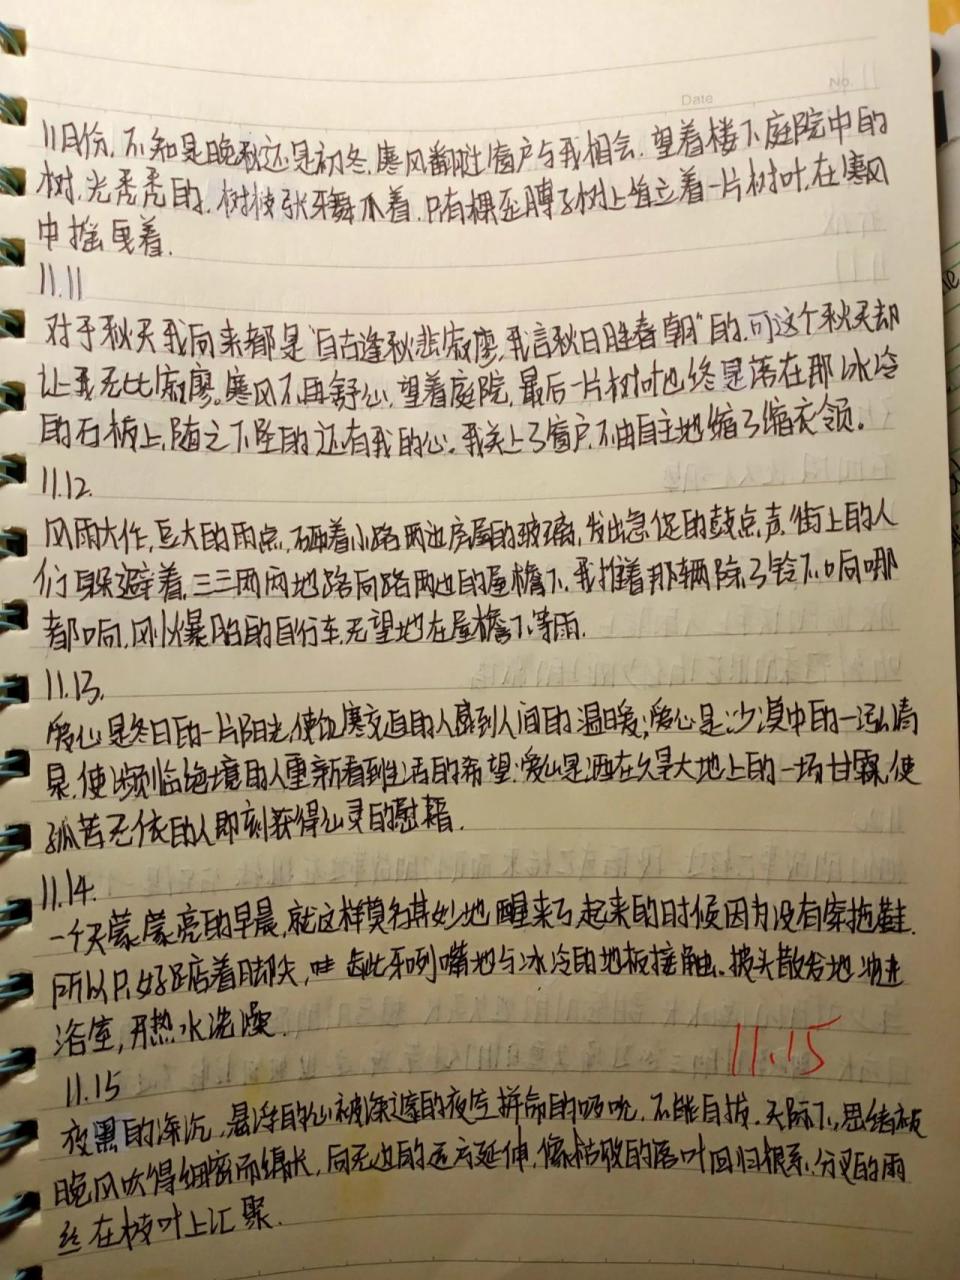 No.
Date
11月份,不知是晚秋还是初冬,寒风翻过窗户与我相会.望着楼下庭院中的
树,光秃秃的,树枝张牙舞爪着.只有棵歪脖子树上直立着一片树叶,在寒风
中摇曳着.
11.11
对于秋天我向来都是"自古逢秋悲寂寥,我言秋日胜春朝"的,可这个秋天却
让我无比寂寥。寒风不再舒心,望着庭院,最后一片树叶也终是落在那冰冷
的石板上,随之下坠的还有我的心。我关上了窗户,不由自主地缩了缩衣领。
11.12.
风雨大作,豆大的雨点,砸着小路两边房屋的玻璃,发出急促的鼓点声,街上的人
们躲避着,三三两两地跑向路两边的屋檐下.我推着那辆除了铃不响哪
都响,风火爆胎的自行车,无望地在屋檐下等雨.
11.13.
爱心是冬日的一片阳光,使饥寒交迫的人感到人间的温暖;爱心是沙漠中的一泓清
泉,使濒临绝境的人重新看到生活的希望;爱心是洒在久旱大地上的一场甘霖,使
孤苦无依的人即刻获得心灵的慰藉.
11.14.
一个天蒙蒙亮的早晨,就这样莫名其妙地醒来了,起来的时候因为没有穿拖鞋.
所以只好踮着脚尖,呲牙咧嘴地与冰冷的地板接触.披头散发地冲进
浴室,开热水洗澡.
11.15
11.15
夜黑的深沉,悬浮的心被深邃的夜空拼命的吸吮,不能自拔.天际下,思绪被
晚风吹得细密而绵长,向无边的远方延伸,像枯败的落叶回归根系,分叉的雨
丝在枝叶上汇聚.